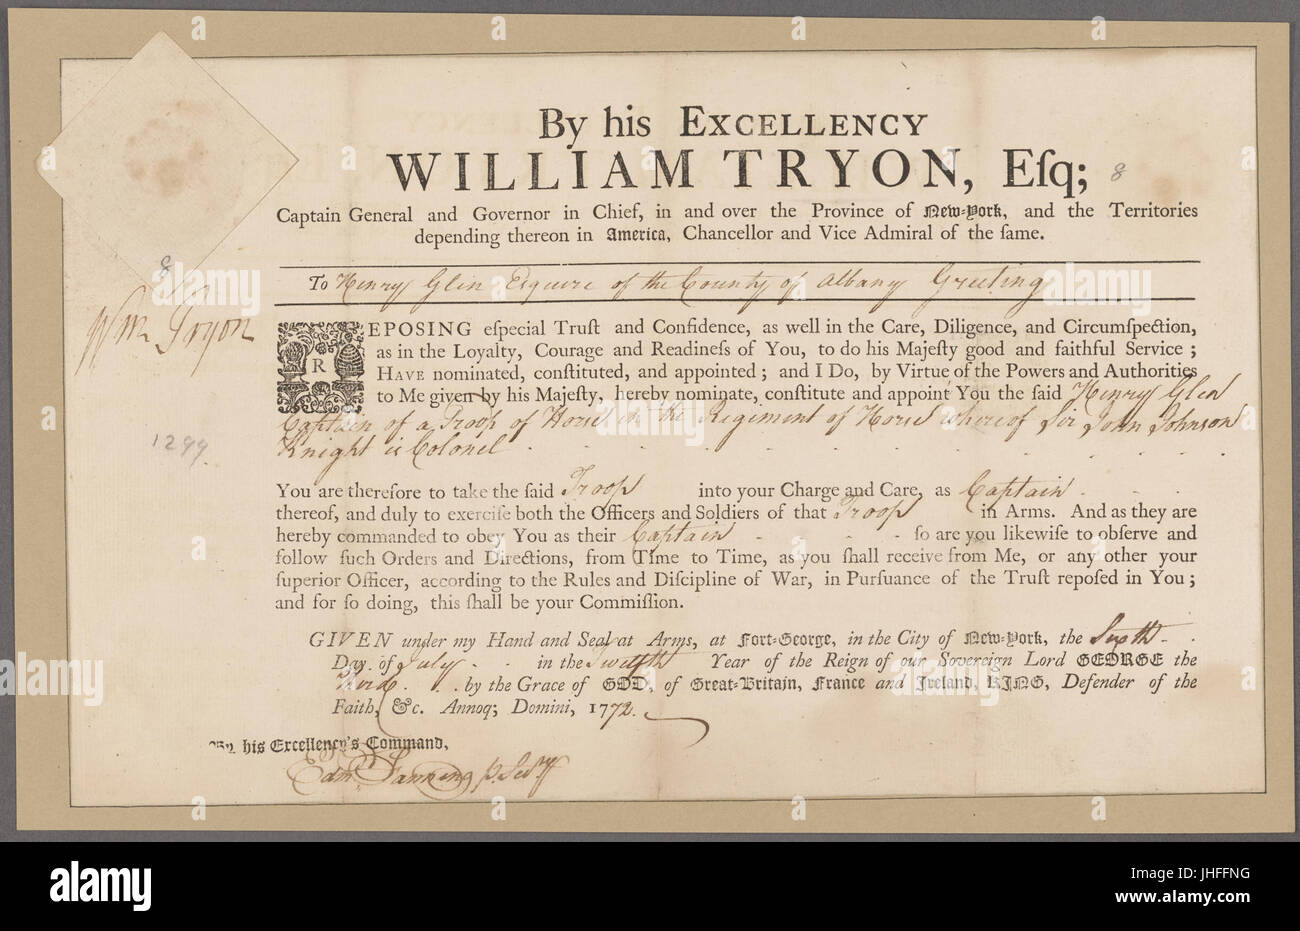 By his EXCELLENCY
WILLIAM TRYON, Eſq; 8
Captain General and Governor in Chief, in and over the Province of New-York, and the Territories
depending thereon in America, Chancellor and Vice Admiral of the ſame.
8
To Henry Glen Esquire of the County of Albany Greeting
Wm Tryon
REPOSING eſpecial Truſt and Confidence, as well in the Care, Diligence, and Circumſpection,
as in the Loyalty, Courage and Readineſs of You, to do his Majeſty good and faithful Service;
HAVE nominated, conſtituted, and appointed; and I Do, by Virtue of the Powers and Authorities
to Me given by his Majeſty, hereby nominate, conſtitute and appoint You the said Henry Glen
Captain of a Troop of Horse in the Regiment of Horse whereof Sir John Johnson
Knight is Colonel
1299.
You are therefore to take the ſaid Troop into your Charge and Care, as Captain
thereof, and duly to exerciſe both the Officers and Soldiers of that Troop in Arms. And as they are
hereby commanded to obey You as their Captain ſo are you likewiſe to obſerve and
follow ſuch Orders and Directions, from Time to Time, as you ſhall receive from Me, or any other your
ſuperior Officer, according to the Rules and Diſcipline of War, in Purſuance of the Truſt repoſed in You;
and for ſo doing, this ſhall be your Commiſſion.
GIVEN under my Hand and Seal at Arms, at Fort-George, in the City of New-York, the Sixth
Day of July in the Twelfth Year of the Reign of our Sovereign Lord GEORGE the
Third by the Grace of GOD, of Great-Britain, France and Ireland, KING, Defender of the
Faith, &c. Annoq; Domini, 1772.
By his Excellency's Command,
Edm. Fanning p. Secry
alamy
Image ID: JHFFNG
www.alamy.com